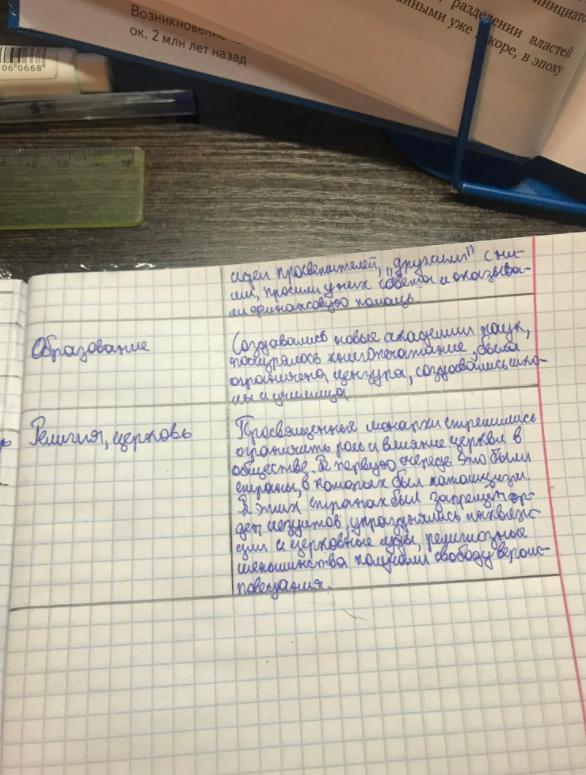 инициато
разделении властей
нными уже вскоре, в эпоху
Возникновение
ок. 2 млн лет назад
06 0668
идеи просветителей, "дружили" с ни-
ми, просили у них советы и оказыва-
ли финансовую помощь
Образование
Создавались новые академии наук,
поощрялось книгопечатание, была
ограничена цензура, создавались шко-
лы и училища
Религия, церковь
Просвященные монархи стремились
ограничить роль и влияние церкви в
обществе. В первую очередь это были
страны, в которых был католицизм.
В этих странах был запрещён ор-
ден иезуитов, упразднялись инквизи-
ции и церковные суды, религиозные
меньшинства получали свободу верои-
поведания.